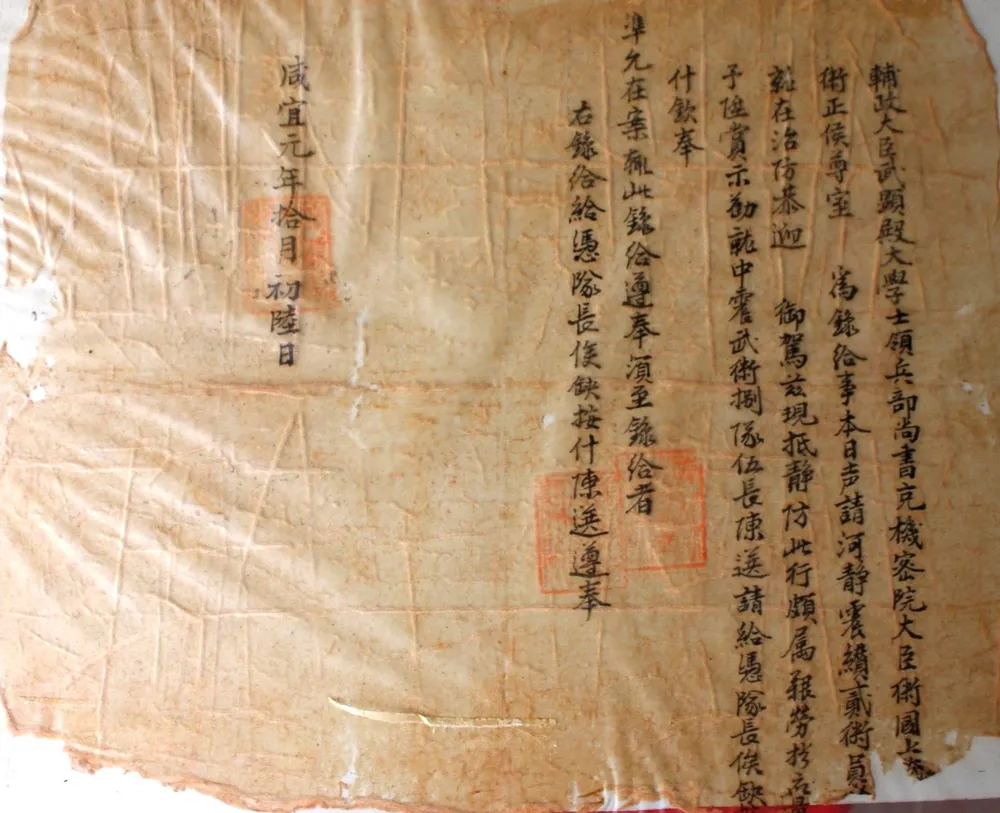 輔政大臣武顯殿大學士領兵部尚書充機密院大臣衛國
衛正侯尊室 為錄給事本日声請河靜震績貳衛員
就在治防恭迎 御駕茲現抵靜防此行頗属艱勞
予陞賞示勸就中震武衛捌隊伍長陳送請給憑隊長俟缺
什欽奉
準允在案輒此錄給遵奉須至錄給者
右錄給給憑隊長俟缺按什陳送遵奉
咸宜元年拾月初陸日